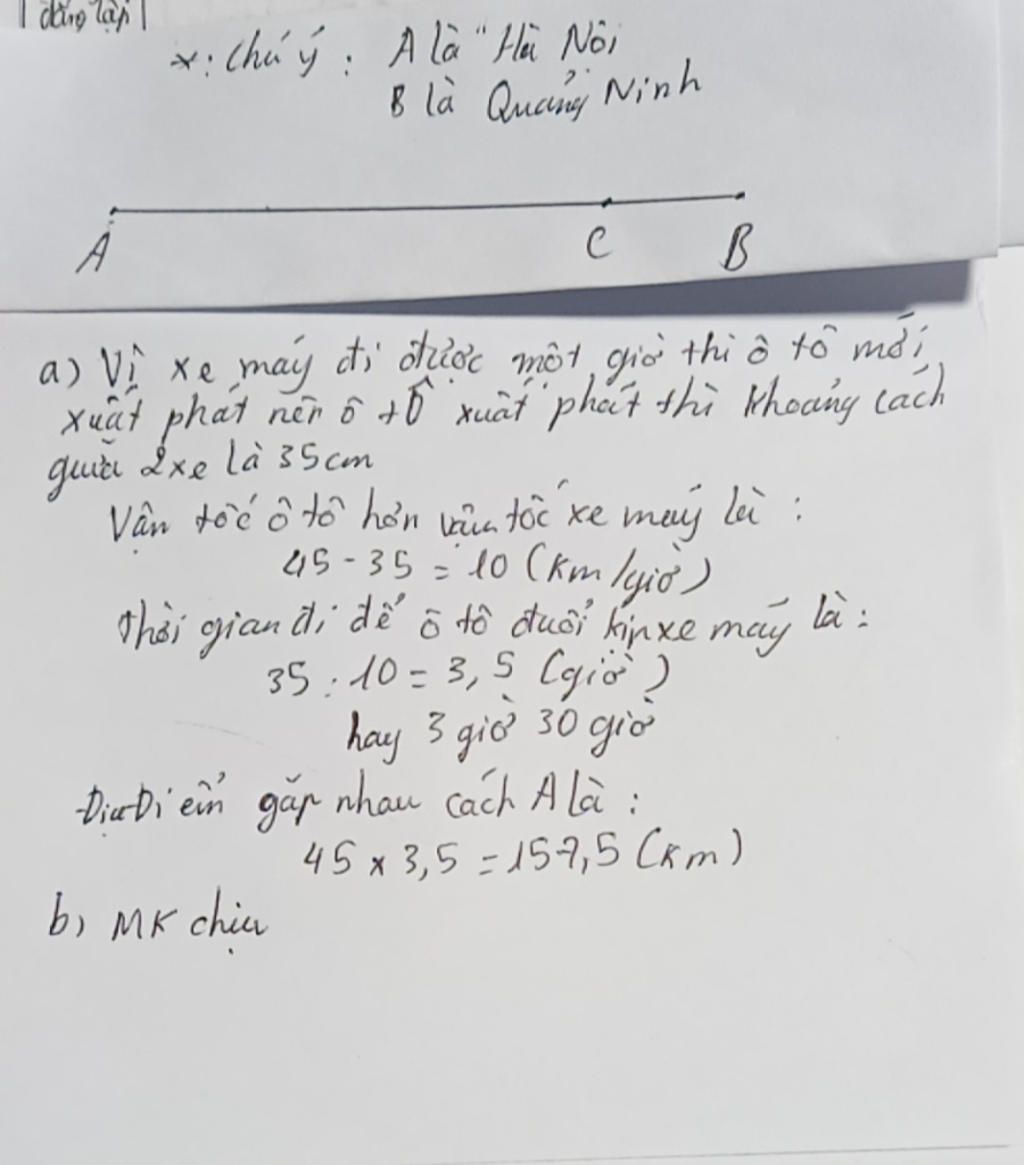 đáng lập
*: Chú ý: A là "Hà Nôi
B là Quảng Ninh
A C B
a) Vì xe máy đi được một giờ thì ô tô mới
xuất phát nên ô tô xuất phát thì khoảng cách
giữa 2xe là 35cm
Vận tốc ô tô hơn vận tốc xe máy là:
45 - 35 = 10 (km/giờ)
Thời gian đi để ô tô đuổi kịp xe máy là:
35 : 10 = 3,5 (giờ)
hay 3 giờ 30 giờ
Địa Điểm gặp nhau cách A là:
45 x 3,5 = 157,5 (km)
b) MK chịu